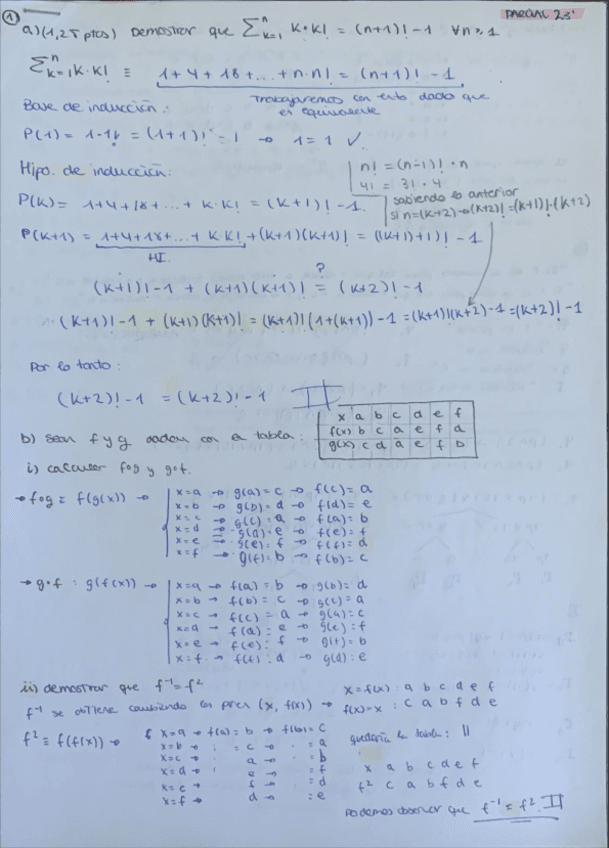 ① PARCIAL 23'
a) (1,25 ptos) Demostrar que ∑ⁿₖ₌₁ k·k! = (n+1)! - 1 ∀n≥1
∑ⁿₖ₌₁ k·k! ≡ 1+4+18+...+n·n! = (n+1)! - 1
Trabajaremos con esto dado que es equivalente
Base de inducción:
P(1) = 1·1! = (1+1)! - 1 → 1=1 ✓
Hipo. de inducción:
n! = (n-1)! · n
4! = 3! · 4
sabiendo lo anterior
si n=(k+2) → (k+2)! = (k+1)!·(k+2)
P(k) = 1+4+18+...+ k·k! = (k+1)! - 1
P(k+1) = 1+4+18+...+ k·k! + (k+1)(k+1)! = ((k+1)+1)! - 1
HI.
(k+1)! - 1 + (k+1)(k+1)! ?= (k+2)! - 1
(k+1)! - 1 + (k+1)(k+1)! = (k+1)! (1+(k+1)) - 1 = (k+1)!(k+2) - 1 = (k+2)! - 1
Por lo tanto:
(k+2)! - 1 = (k+2)! - 1
b) sean f y g dadas con la tabla:
x a b c d e f
f(x) b c a e f d
g(x) c d a e f b
i) calcular f∘g y g∘f.
→ f∘g ≡ f(g(x)) →
x=a → g(a)=c → f(c)=a
x=b → g(b)=d → f(d)=e
x=c → g(c)=a → f(a)=b
x=d → g(d)=e → f(e)=f
x=e → g(e)=f → f(f)=d
x=f → g(f)=b → f(b)=c
→ g∘f : g(f(x)) →
x=a → f(a)=b → g(b)=d
x=b → f(b)=c → g(c)=a
x=c → f(c)=a → g(a)=c
x=d → f(d)=e → g(e)=f
x=e → f(e)=f → g(f)=b
x=f → f(f)=d → g(d)=e
ii) demostrar que f⁻¹ = f²
f⁻¹ se obtiene cambiando los pares (x, f(x)) →
x=f(x) : a b c d e f
f(x)=x : c a b f d e
f² ≡ f(f(x)) →
x=a → f(a)=b → f(b)=c
x=b → " =c → " =a
x=c → " a → " =b
x=d → " e → " =f
x=e → f → " =d
x=f → d → " =e
quedaría la tabla:
x a b c d e f
f² c a b f d e
Podemos observar que f⁻¹ = f².